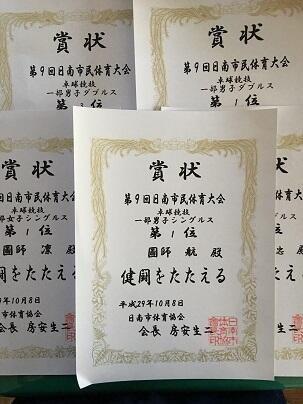 賞状
第9回日南市民体育大会
卓球競技
一部男子ダブルス
第3位
賞状
第9回日南市民体育大会
卓球競技
一部男子ダブルス
第1位
賞状
日南市民体育大会
卓球競技
部女子シングルス
第1位
圖師 凛 殿
闘をたたえる
9年10月8日
日南市体育協会
会長 房安生二
賞状
第9回日南市民体育大会
卓球競技
一部男子シングルス
第1位
圖師 航 殿
健闘をたたえる
平成29年10月8日
日南市体育協会
会長 房安生二